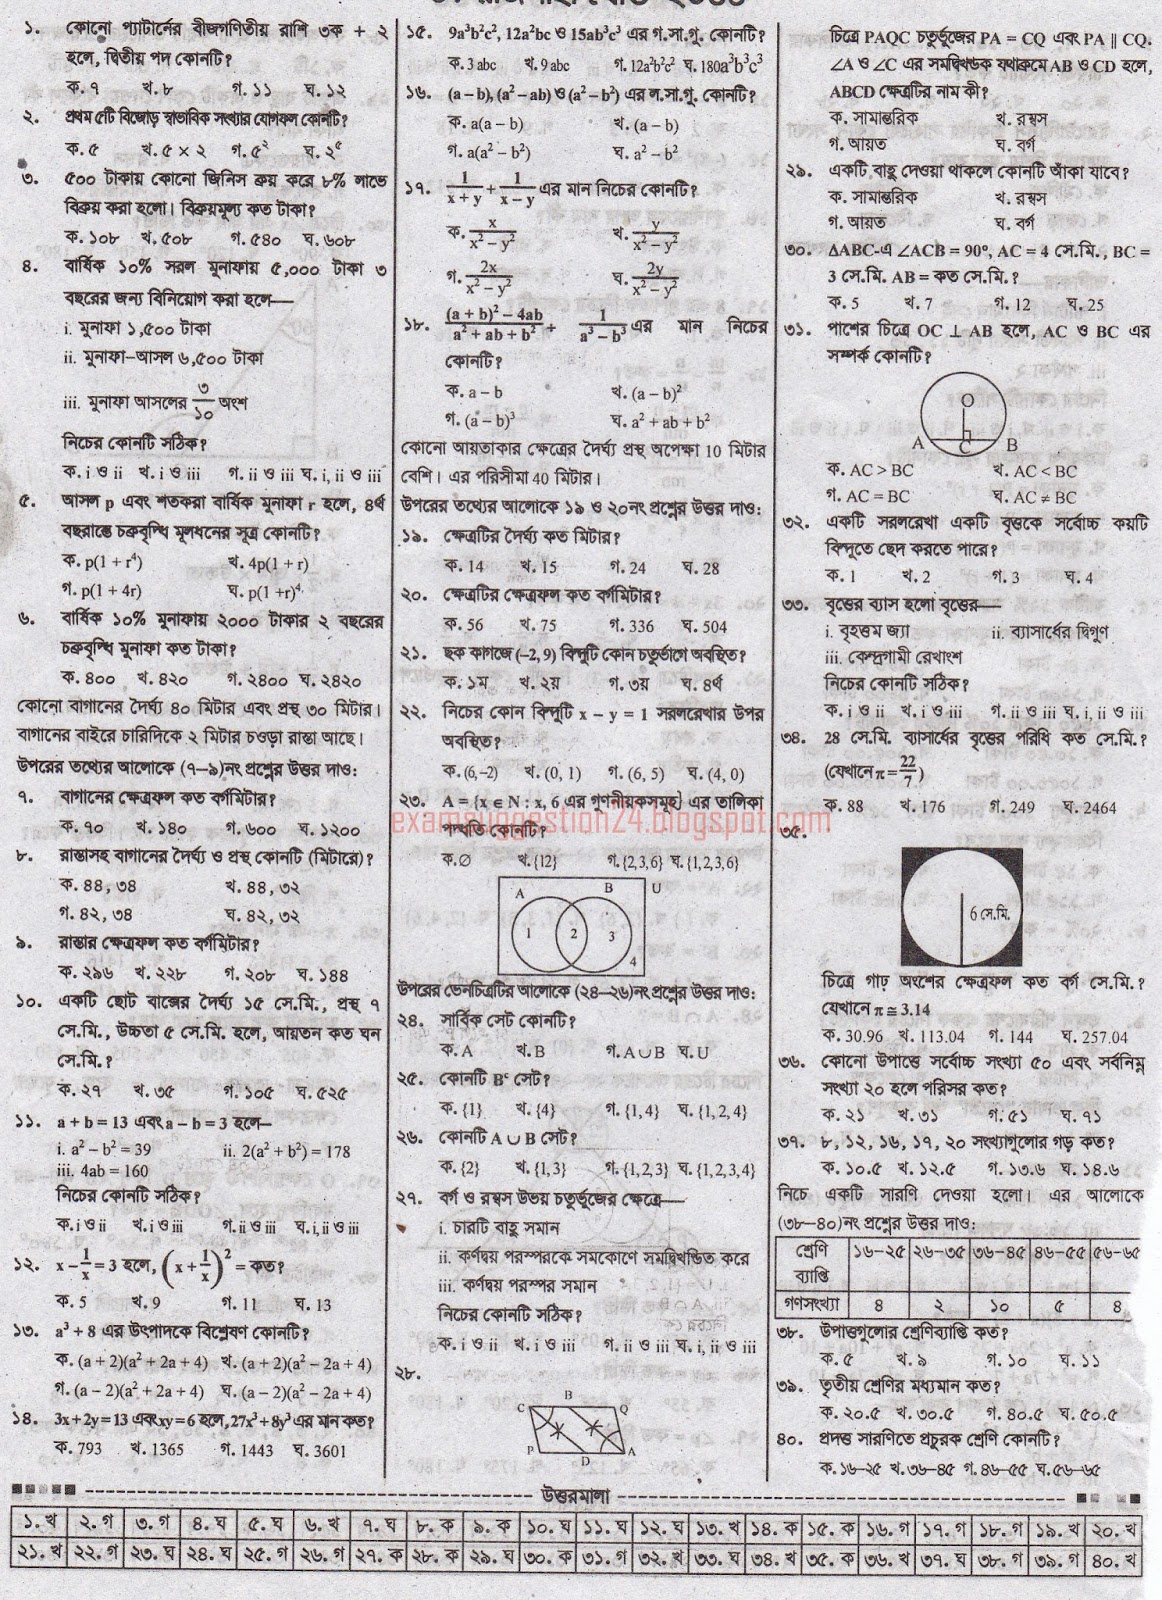 ১. কোনো প্যাটার্নের বীজগণিতীয় রাশি ৩ক + ২
হলে, দ্বিতীয় পদ কোনটি?
ক. ৭ খ. ৮ গ. ১১ ঘ. ১২
২. প্রথম ৫টি বিজোড় স্বাভাবিক সংখ্যার যোগফল কোনটি?
ক. ৫ খ. ৫ × ২ গ. ৫² ঘ. ২⁵
৩. ৫০০ টাকায় কোনো জিনিস ক্রয় করে ৮% লাভে
বিক্রয় করা হলো। বিক্রয়মূল্য কত টাকা?
ক. ১০৮ খ. ৫০৮ গ. ৫৪০ ঘ. ৬০৮
৪. বার্ষিক ১০% সরল মুনাফায় ৫,০০০ টাকা ৩
বছরের জন্য বিনিয়োগ করা হলে—
i. মুনাফা ১,৫০০ টাকা
ii. মুনাফা–আসল ৬,৫০০ টাকা
iii. মুনাফা আসলের ৩/১০ অংশ
নিচের কোনটি সঠিক?
ক. i ও ii খ. i ও iii গ. ii ও iii ঘ. i, ii ও iii
৫. আসল p এবং শতকরা বার্ষিক মুনাফা r হলে, ৪র্থ
বছরান্তে চক্রবৃদ্ধি মূলধনের সূত্র কোনটি?
ক. p(1 + r⁴) খ. 4p(1 + r)
গ. p(1 + 4r) ঘ. p(1 +r)⁴
৬. বার্ষিক ১০% মুনাফায় ২০০০ টাকার ২ বছরের
চক্রবৃদ্ধি মুনাফা কত টাকা?
ক. ৪০০ খ. ৪২০ গ. ২৪০০ ঘ. ২৪২০
কোনো বাগানের দৈর্ঘ্য ৪০ মিটার এবং প্রস্থ ৩০ মিটার।
বাগানের বাইরে চারিদিকে ২ মিটার চওড়া রাস্তা আছে।
উপরের তথ্যের আলোকে (৭–৯)নং প্রশ্নের উত্তর দাও:
৭. বাগানের ক্ষেত্রফল কত বর্গমিটার?
ক. ৭০ খ. ১৪০ গ. ৬০০ ঘ. ১২০০
৮. রাস্তাসহ বাগানের দৈর্ঘ্য ও প্রস্থ কোনটি (মিটারে)?
ক. ৪৪, ৩৪ খ. ৪৪, ৩২
গ. ৪২, ৩৪ ঘ. ৪২, ৩২
৯. রাস্তার ক্ষেত্রফল কত বর্গমিটার?
ক. ২৯৬ খ. ২২৮ গ. ২০৮ ঘ. ১৪৪
১০. একটি ছোট বাক্সের দৈর্ঘ্য ১৫ সে.মি., প্রস্থ ৭
সে.মি., উচ্চতা ৫ সে.মি. হলে, আয়তন কত ঘন
সে.মি.?
ক. ২৭ খ. ৩৫ গ. ১০৫ ঘ. ৫২৫
১১. a + b = 13 এবং a – b = 3 হলে—
i. a² – b² = 39 ii. 2(a² + b²) = 178
iii. 4ab = 160
নিচের কোনটি সঠিক?
ক. i ও ii খ. i ও iii গ. ii ও iii ঘ. i, ii ও iii
১২. x – 1/x = 3 হলে, (x + 1/x)² = কত?
ক. 5 খ. 9 গ. 11 ঘ. 13
১৩. a³ + 8 এর উৎপাদকে বিশ্লেষণ কোনটি?
ক. (a + 2)(a² + 2a + 4) খ. (a + 2)(a² – 2a + 4)
গ. (a – 2)(a² + 2a + 4) ঘ. (a – 2)(a² – 2a + 4)
১৪. 3x + 2y = 13 এবং xy = 6 হলে, 27x³ + 8y³ এর মান কত?
ক. 793 খ. 1365 গ. 1443 ঘ. 3601
১৫. 9a³b²c², 12a²bc ও 15ab³c³ এর গ.সা.গু. কোনটি?
ক. 3 abc খ. 9 abc গ. 12a²b²c² ঘ. 180a³b³c³
১৬. (a – b), (a² – ab) ও (a² – b²) এর ল.সা.গু. কোনটি?
ক. a(a – b) খ. (a – b)
গ. a(a² – b²) ঘ. a² – b²
১৭. 1/(x + y) + 1/(x – y) এর মান নিচের কোনটি?
ক. x/(x² – y²) খ. y/(x² – y²)
গ. 2x/(x² – y²) ঘ. 2y/(x² – y²)
১৮. ((a + b)² – 4ab)/(a² + ab + b²) ÷ 1/(a³ – b³) এর মান নিচের
কোনটি?
ক. a – b খ. (a – b)²
গ. (a – b)³ ঘ. a² + ab + b²
কোনো আয়তাকার ক্ষেত্রের দৈর্ঘ্য প্রস্থ অপেক্ষা 10 মিটার
বেশি। এর পরিসীমা 40 মিটার।
উপরের তথ্যের আলোকে ১৯ ও ২০নং প্রশ্নের উত্তর দাও:
১৯. ক্ষেত্রটির দৈর্ঘ্য কত মিটার?
ক. 14 খ. 15 গ. 24 ঘ. 28
২০. ক্ষেত্রটির ক্ষেত্রফল কত বর্গমিটার?
ক. 56 খ. 75 গ. 336 ঘ. 504
২১. ছক কাগজে (–2, 9) বিন্দুটি কোন চতুর্ভাগে অবস্থিত?
ক. ১ম খ. ২য় গ. ৩য় ঘ. ৪র্থ
২২. নিচের কোন বিন্দুটি x – y = 1 সরলরেখার উপর
অবস্থিত?
ক. (6, –2) খ. (0, 1) গ. (6, 5) ঘ. (4, 0)
২৩. A = {x ∈ N : x, 6 এর গুণনীয়কসমূহ} এর তালিকা
পদ্ধতি কোনটি?
examsuggestion24.blogspot.com
ক. ∅ খ. {12} গ. {2, 3, 6} ঘ. {1, 2, 3, 6}
A B U
1 2 3
4
উপরের ভেনচিত্রটির আলোকে (২৪–২৬)নং প্রশ্নের উত্তর দাও:
২৪. সার্বিক সেট কোনটি?
ক. A খ. B গ. A∪B ঘ. U
২৫. কোনটি Bᶜ সেট?
ক. {1} খ. {4} গ. {1, 4} ঘ. {1, 2, 4}
২৬. কোনটি A ∪ B সেট?
ক. {2} খ. {1, 3} গ. {1, 2, 3} ঘ. {1, 2, 3, 4}
২৭. বর্গ ও রম্বস উভয় চতুর্ভুজের ক্ষেত্রে—
i. চারটি বাহু সমান
ii. কর্ণদ্বয় পরস্পরকে সমকোণে সমদ্বিখণ্ডিত করে
iii. কর্ণদ্বয় পরস্পর সমান
নিচের কোনটি সঠিক?
ক. i ও ii খ. i ও iii গ. ii ও iii ঘ. i, ii ও iii
২৮.
C B Q
P D A
চিত্রে PAQC চতুর্ভুজের PA = CQ এবং PA || CQ.
∠A ও ∠C এর সমদ্বিখণ্ডক যথাক্রমে AB ও CD হলে,
ABCD ক্ষেত্রটির নাম কী?
ক. সামান্তরিক খ. রম্বস
গ. আয়ত ঘ. বর্গ
২৯. একটি বাহু দেওয়া থাকলে কোনটি আঁকা যাবে?
ক. সামান্তরিক খ. রম্বস
গ. আয়ত ঘ. বর্গ
৩০. ΔABC-এ ∠ACB = 90°, AC = 4 সে.মি., BC =
3 সে.মি. AB = কত সে.মি.?
ক. 5 খ. 7 গ. 12 ঘ. 25
৩১. পাশের চিত্রে OC ⊥ AB হলে, AC ও BC এর
সম্পর্ক কোনটি?
O
A C B
ক. AC > BC খ. AC < BC
গ. AC = BC ঘ. AC ≠ BC
৩২. একটি সরলরেখা একটি বৃত্তকে সর্বোচ্চ কয়টি
বিন্দুতে ছেদ করতে পারে?
ক. 1 খ. 2 গ. 3 ঘ. 4
৩৩. বৃত্তের ব্যাস হলো বৃত্তের—
i. বৃহত্তম জ্যা ii. ব্যাসার্ধের দ্বিগুণ
iii. কেন্দ্রগামী রেখাংশ
নিচের কোনটি সঠিক?
ক. i ও ii খ. i ও iii গ. ii ও iii ঘ. i, ii ও iii
৩৪. 28 সে.মি. ব্যাসার্ধের বৃত্তের পরিধি কত সে.মি.?
(যেখানে π = 22/7)
ক. 88 খ. 176 গ. 249 ঘ. 2464
৩৫.
6 সে.মি.
চিত্রে গাঢ় অংশের ক্ষেত্রফল কত বর্গ সে.মি.?
যেখানে π ≅ 3.14
ক. 30.96 খ. 113.04 গ. 144 ঘ. 257.04
৩৬. কোনো উপাত্তে সর্বোচ্চ সংখ্যা ৫০ এবং সর্বনিম্ন
সংখ্যা ২০ হলে পরিসর কত?
ক. ২১ খ. ৩১ গ. ৫১ ঘ. ৭১
৩৭. ৮, ১২, ১৬, ১৭, ২০ সংখ্যাগুলোর গড় কত?
ক. ১০.৫ খ. ১২.৫ গ. ১৩.৬ ঘ. ১৪.৬
নিচে একটি সারণি দেওয়া হলো। এর আলোকে
(৩৮–৪০)নং প্রশ্নের উত্তর দাও:
শ্রেণি ব্যাপ্তি ১৬–২৫ ২৬–৩৫ ৩৬–৪৫ ৪৬–৫৫ ৫৬–৬৫
গণসংখ্যা ৪ ২ ১০ ৫ ৪
৩৮. উপাত্তগুলোর শ্রেণিব্যাপ্তি কত?
ক. ৫ খ. ৯ গ. ১০ ঘ. ১১
৩৯. তৃতীয় শ্রেণির মধ্যমান কত?
ক. ২০.৫ খ. ৩০.৫ গ. ৪০.৫ ঘ. ৫০.৫
৪০. প্রদত্ত সারণিতে প্রচুরক শ্রেণি কোনটি?
ক. ১৬–২৫ খ. ৩৬–৪৫ গ. ৪৬–৫৫ ঘ. ৫৬–৬৫
উত্তরমালা
১. খ ২. গ ৩. গ ৪. ঘ ৫. ঘ ৬. খ ৭. ঘ ৮. ক ৯. ক ১০. ঘ ১১. ঘ ১২. ঘ ১৩. খ ১৪. ক ১৫. ক ১৬. গ ১৭. গ ১৮. গ ১৯. খ ২০. খ
২১. খ ২২. গ ২৩. ঘ ২৪. ঘ ২৫. গ ২৬. গ ২৭. ক ২৮. ক ২৯. ঘ ৩০. ক ৩১. গ ৩২. খ ৩৩. ঘ ৩৪. খ ৩৫. ক ৩৬. খ ৩৭. ঘ ৩৮. গ ৩৯. গ ৪০. খ